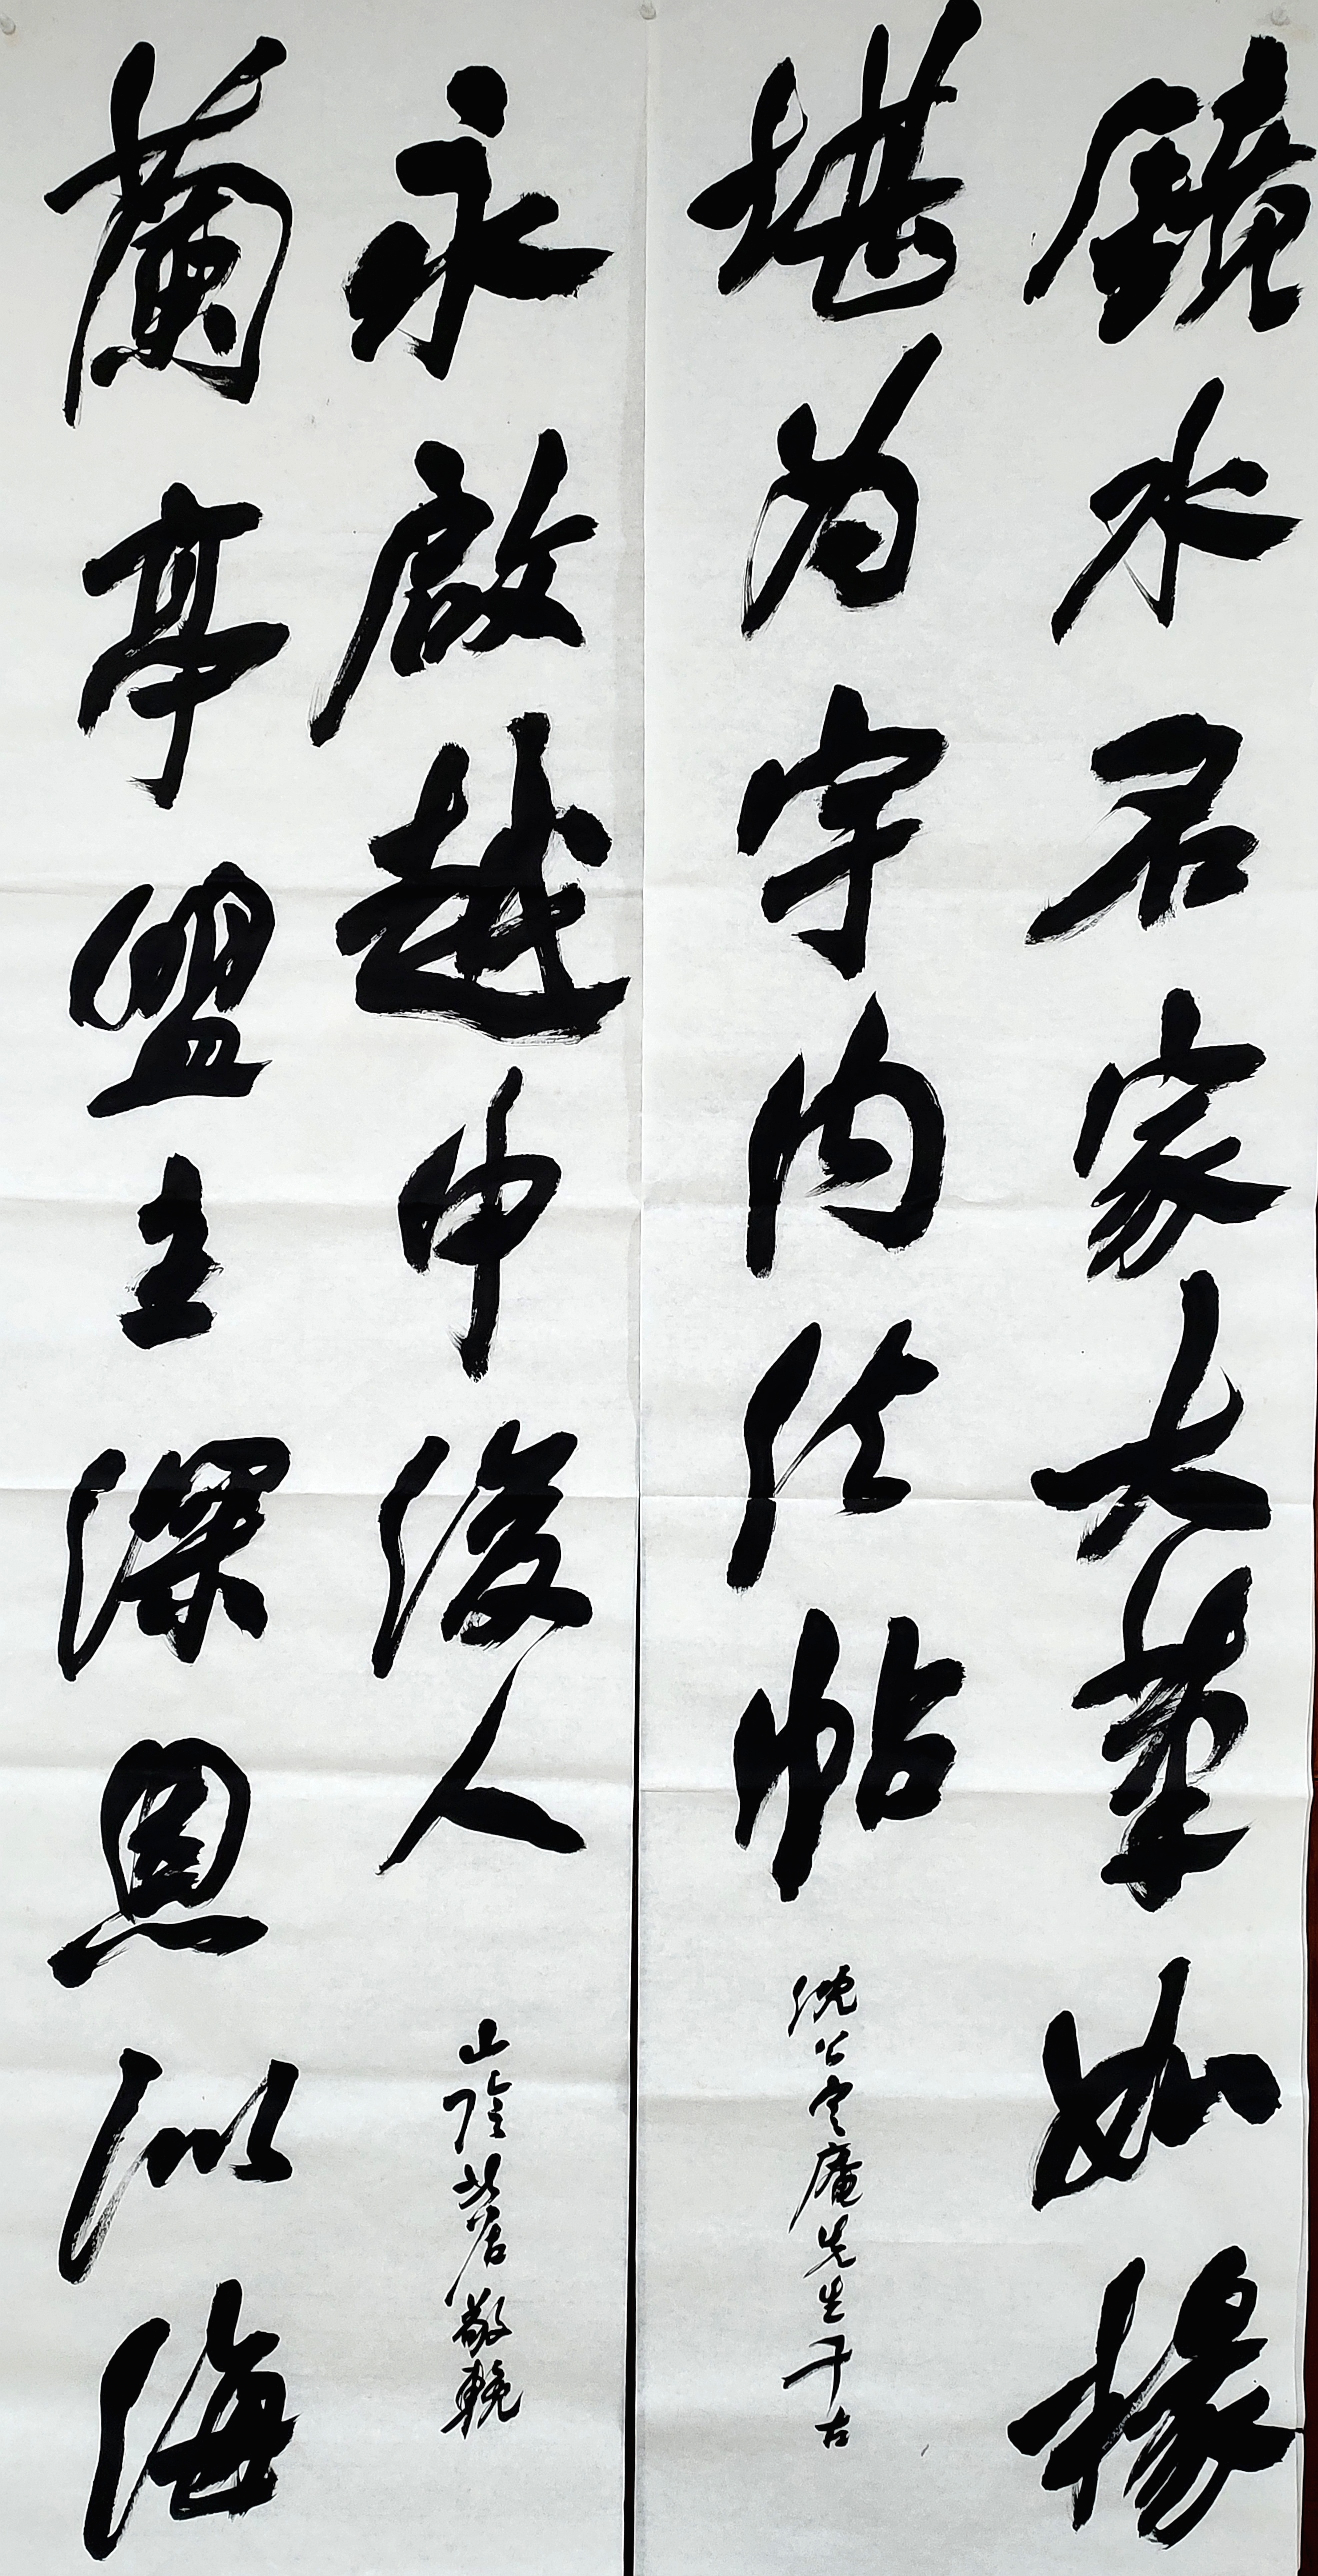 鏡水名家大筆如椽
堪為宇內法帖
沈公定庵先生千古
蘭亭盟主深恩似海
永啟越中後人
山陰 敬輓